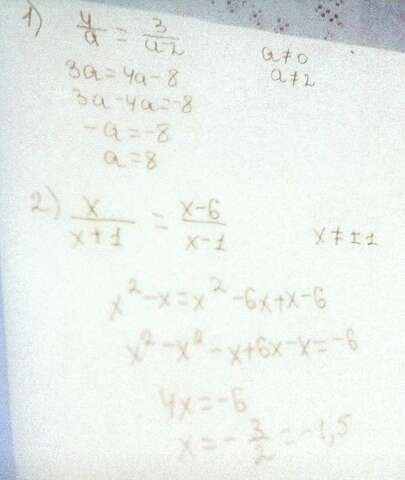 1) 4/a = 3/(a-2)
a≠0
3a=4a-8
a≠2
3a-4a=-8
-a=-8
a=8
2) x/(x+1) = (x-6)/(x-1)
x≠±1
x²-x=x²-6x+x-6
x²-x²-x+6x-x=-6
4x=-6
x=-3/2=-1,5